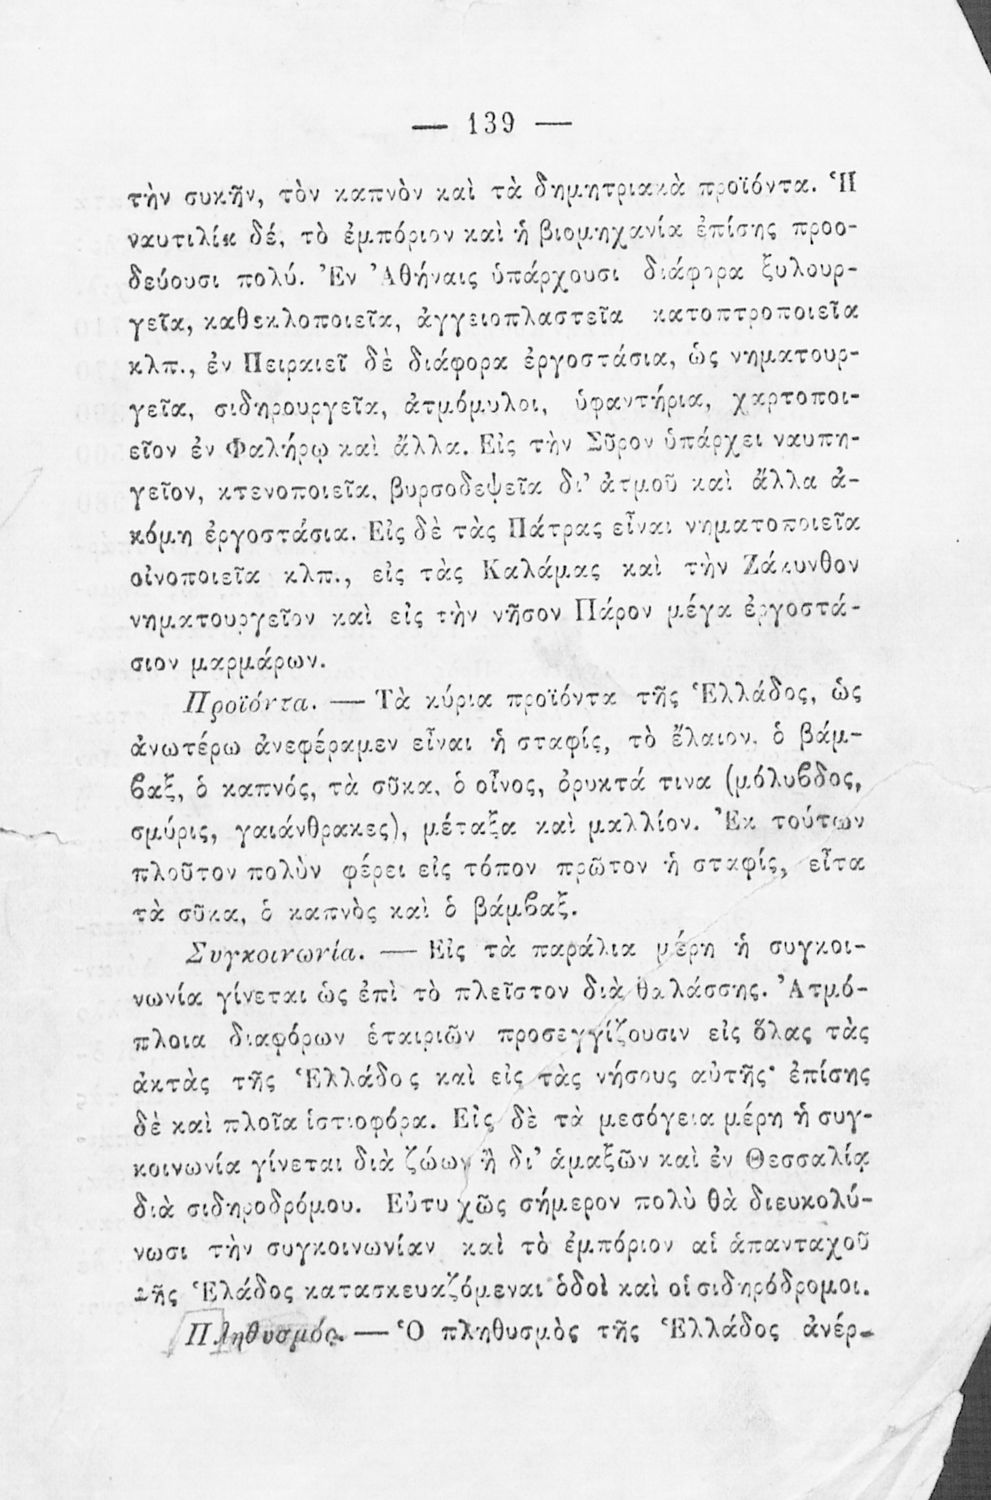 — 139 —
τὴν συκῆν, τὸν καπνὸν καὶ τὰ δημητριακὰ προϊόντα. Ἡ
ναυτιλία δέ, τὸ ἐμπόριον καὶ ἡ βιομηχανία ἐπίσης προο-
δεύουσι πολύ. Ἐν Ἀθήναις ὑπάρχουσι διάφορα ξυλουρ-
γεῖα, καθεκλοποιεῖα, ἀγγειοπλαστεῖα κατοπτροποιεῖα
κλπ., ἐν Πειραιεῖ δὲ διάφορα ἐργοστάσια, ὡς νηματουρ-
γεῖα, σιδηρουργεῖα, ἀτμόμυλοι, ὑφαντήρια, χαρτοποι-
εῖον ἐν Φαλήρῳ καὶ ἄλλα. Εἰς τὴν Σῦρον ὑπάρχει ναυπη-
γεῖον, κτενοποιεῖα, βυρσοδεψεῖα δι’ ἀτμοῦ καὶ ἄλλα ἀ-
κόμη ἐργοστάσια. Εἰς δὲ τὰς Πάτρας εἶναι νηματοποιεῖα
οἰνοποιεῖα κλπ., εἰς τὰς Καλάμας καὶ τὴν Ζάκυνθον
νηματουργεῖον καὶ εἰς τὴν νῆσον Πάρον μέγα ἐργοστά-
σιον μαρμάρων.
Προϊόντα. — Τὰ κύρια προϊόντα τῆς Ἑλλάδος, ὡς
ἀνωτέρω ἀνεφέραμεν εἶναι ἡ σταφίς, τὸ ἔλαιον, ὁ βάμ-
βαξ, ὁ καπνός, τὰ σῦκα, ὁ οἶνος, ὀρυκτά τινα (μόλυβδος,
σμύρις, γαιάνθρακες), μέταξα καὶ μαλλίον. Ἐκ τούτων
πλοῦτον πολὺν φέρει εἰς τόπον πρῶτον ἡ σταφίς, εἶτα
τὰ σῦκα, ὁ καπνὸς καὶ ὁ βάμβαξ.
Συγκοινωνία. — Εἰς τὰ παράλια μέρη ἡ συγκοι-
νωνία γίνεται ὡς ἐπὶ τὸ πλεῖστον διὰ θαλάσσης. Ἀτμό-
πλοια διαφόρων ἑταιριῶν προσεγγίζουσιν εἰς ὅλας τὰς
ἀκτὰς τῆς Ἑλλάδος καὶ εἰς τὰς νήσους αὐτῆς· ἐπίσης
δὲ καὶ πλοῖα ἱστιοφόρα. Εἰς δὲ τὰ μεσόγεια μέρη ἡ συγ-
κοινωνία γίνεται διὰ ζώων ἢ δι’ ἁμαξῶν καὶ ἐν Θεσσαλίᾳ
διὰ σιδηροδρόμου. Εὐτυχῶς σήμερον πολὺ θὰ διευκολύ-
νωσι τὴν συγκοινωνίαν καὶ τὸ ἐμπόριον αἱ ἁπανταχοῦ
τῆς Ἑλάδος κατασκευαζόμεναι ὁδοὶ καὶ οἱ σιδηρόδρομοι.
Πληθυσμός. — Ὁ πληθυσμὸς τῆς Ἑλλάδος ἀνέρ-